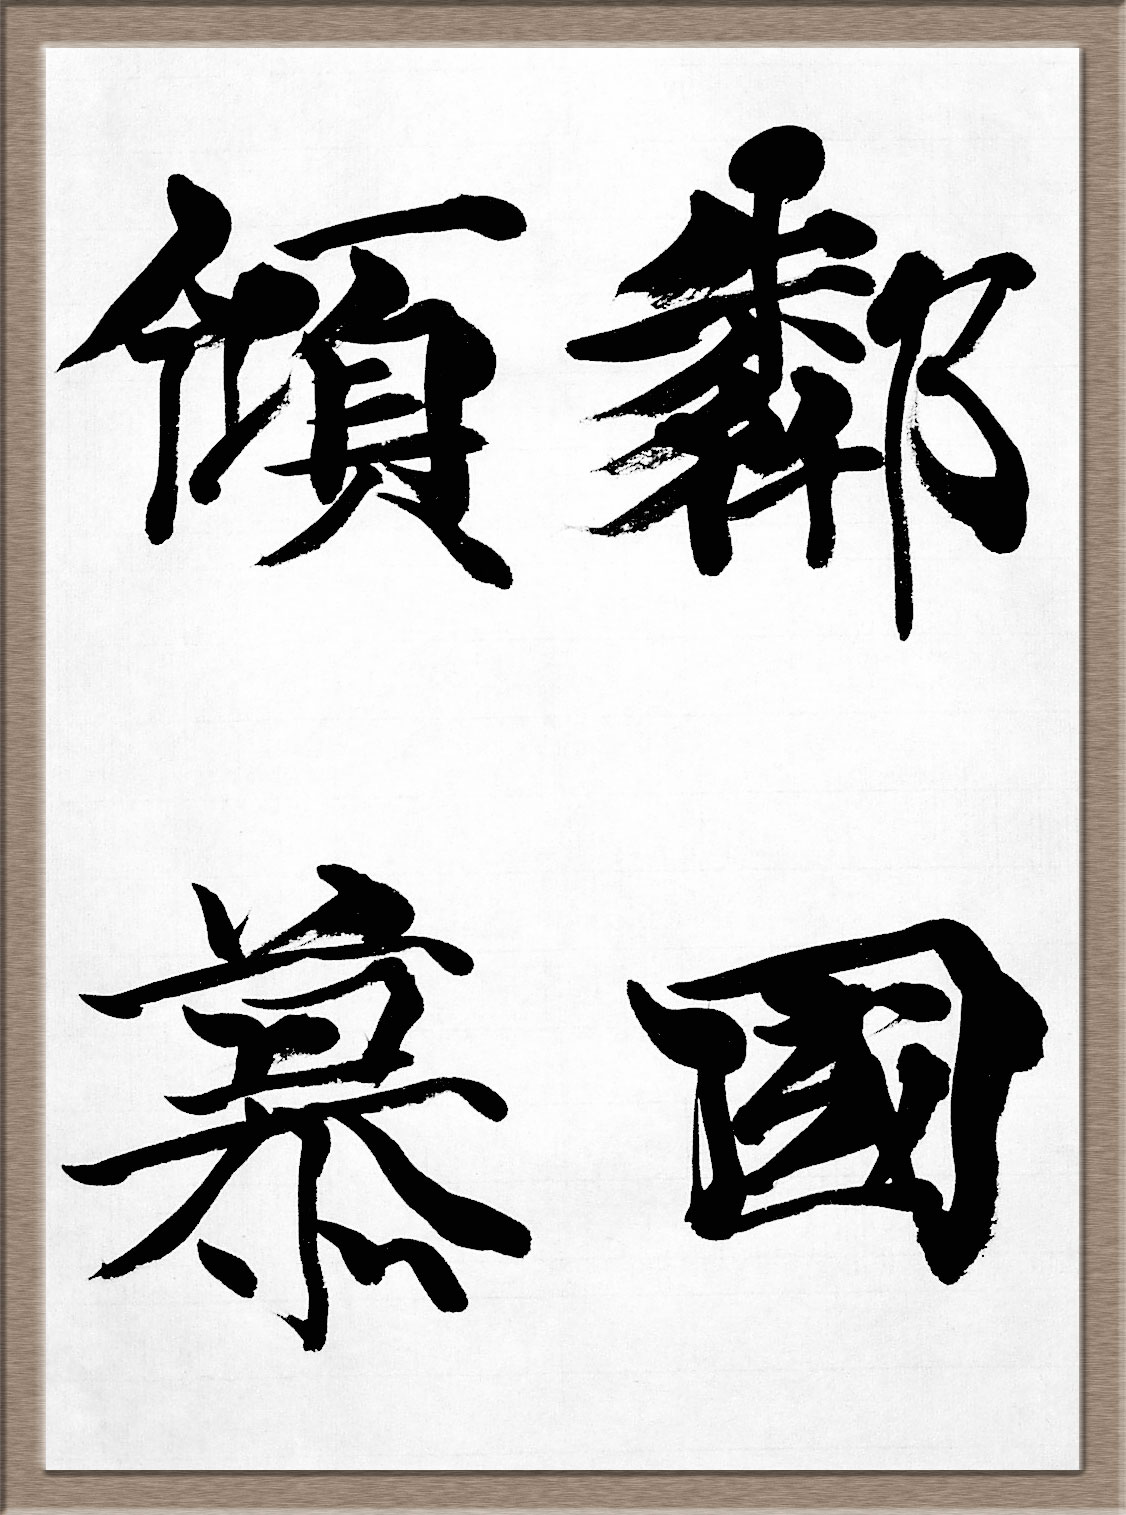 鄰國
傾慕